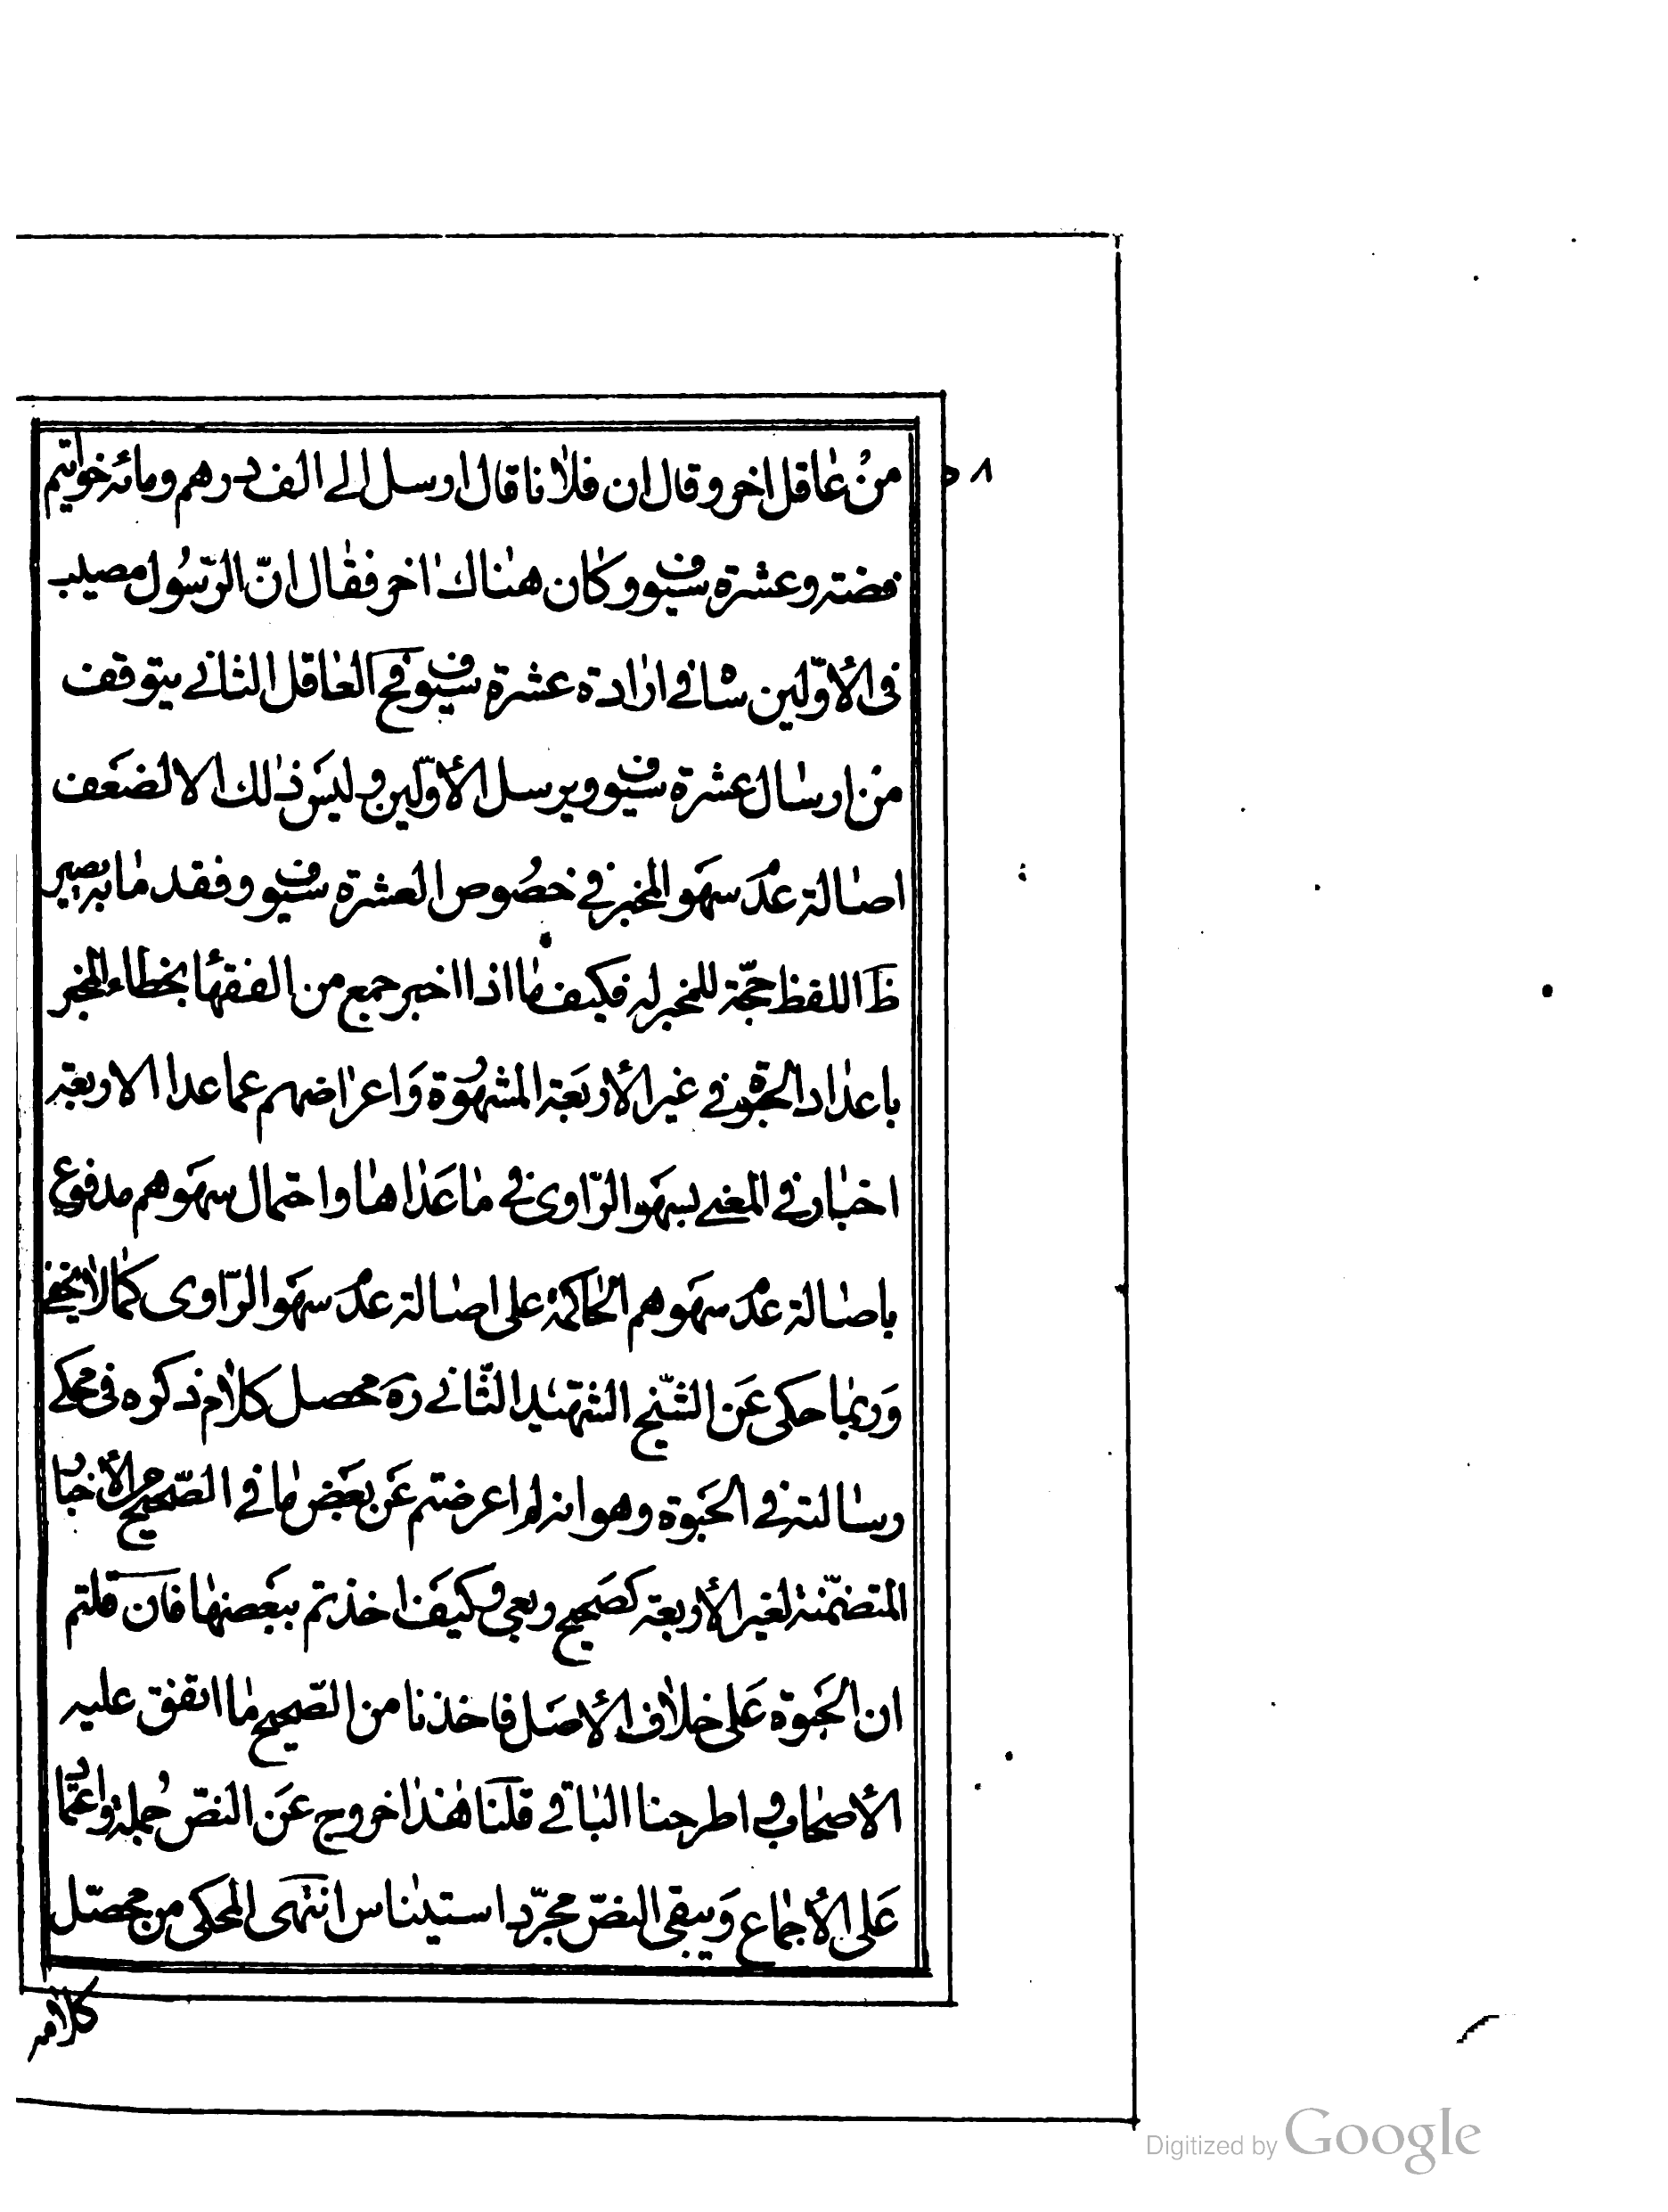 ٥٨
من عاقل اخر وقال ان فلانا قال ارسل الى الف درهم ومائة خواتيم
فضته وعشرة سيوف وكان هناك اخر فقال انّ الرّسول مصيب
فى الأوّلين شافى ارادة عشرة سيوف فح العاقل الثانى يتوقف
من ارسال عشرة سيوف ويرسل الأوّلين وليس ذلك الا لضعف
اصالة عدم سهو المخبر فى خصوص العشرة سيوف وفقد ما به يصير
ظ اللفظ حجّة للمخبر له فكيف ما اذا اخبر جمع من الفقهاء بخطاء المخبر
باعداد الحبوة فى غير الأربعة المشهورة واعراضهم عما عدا الاربعة
اخبار فى المعنى بسهو الرّاوى فى ما عداها واحتمال سهوهم مدفوع
باصالة عدم سهوهم الحاكمة على اصالة عدم سهو الرّاوى كما لا يخفى
وربما حكى عن الشّيخ الشهيد الثّانى ره محصل كلام ذكره فى محكى
رسالته فى الحبوة وهو انه لم اعرضتم عن بعض ما فى الصّحيح الأخبار
المتضمّنة لغير الأربعة كصحيح ربعى وكيف اخذتم ببعضها فان قلتم
ان الحبوة على خلاف الأصل فاخذنا من الصّحيح ما اتفق عليه
الأصحاب واطرحنا الباقى قلنا هذا خروج عن النصّ جملة واعتماد
على الأجماع ويبقى النصّ مجرّد استيناس انتهى المحكى من محصّل
كلامه
Digitized by Google